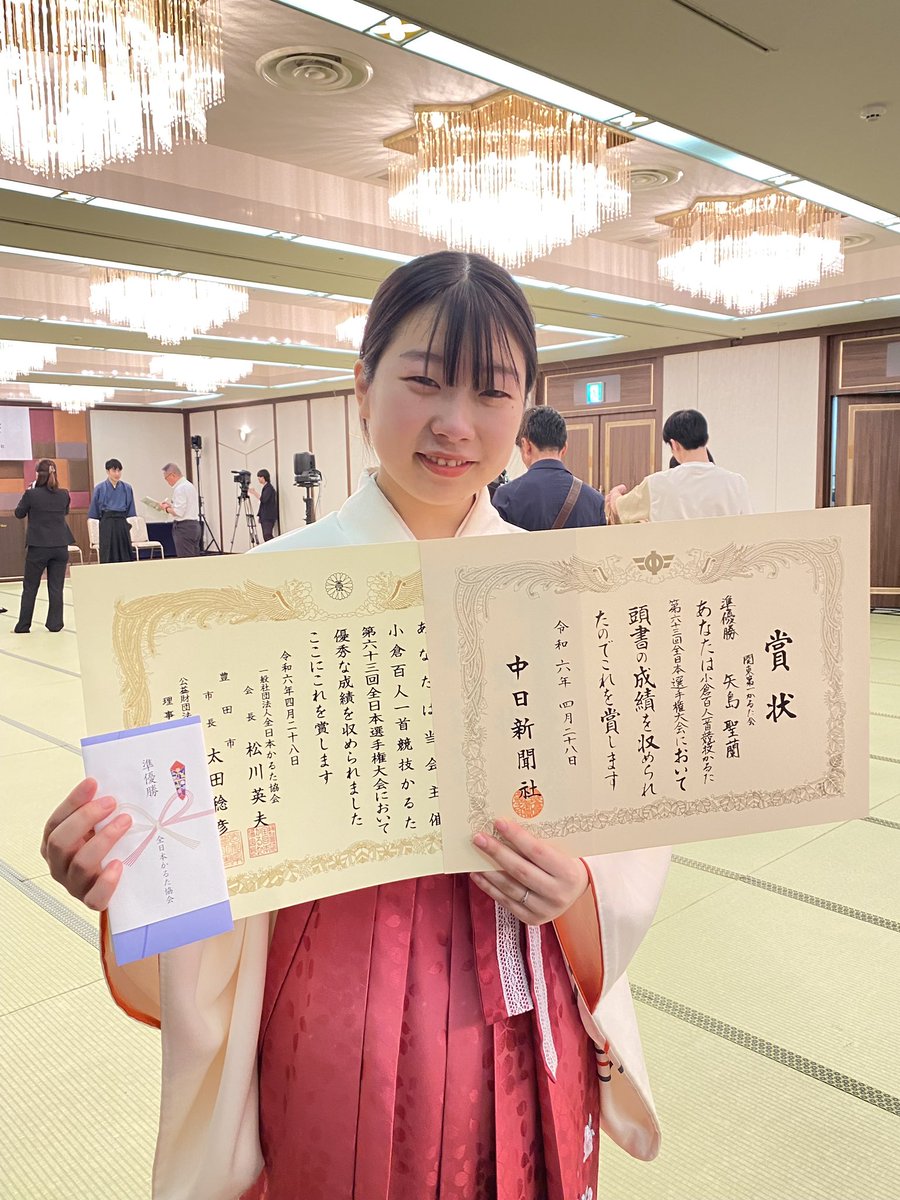 賞状
準優勝
関東第一かるた会
矢島 聖蘭
あなたは小倉百人一首競技かるた
第六十三回全日本選手権大会において
頭書の成績を収められ
たのでこれを賞します
令和六年 四月二十八日
中日新聞社
あなたは当会主催
小倉百人一首競技かるた
第六十三回全日本選手権大会において
優秀な成績を収められました
ここにこれを賞します
令和六年四月二十八日
一般社団法人全日本かるた協会
会長 松川英夫
豊田市
市長 太田稔彦
公益財団法
理事
準優勝
全日本かるた協会